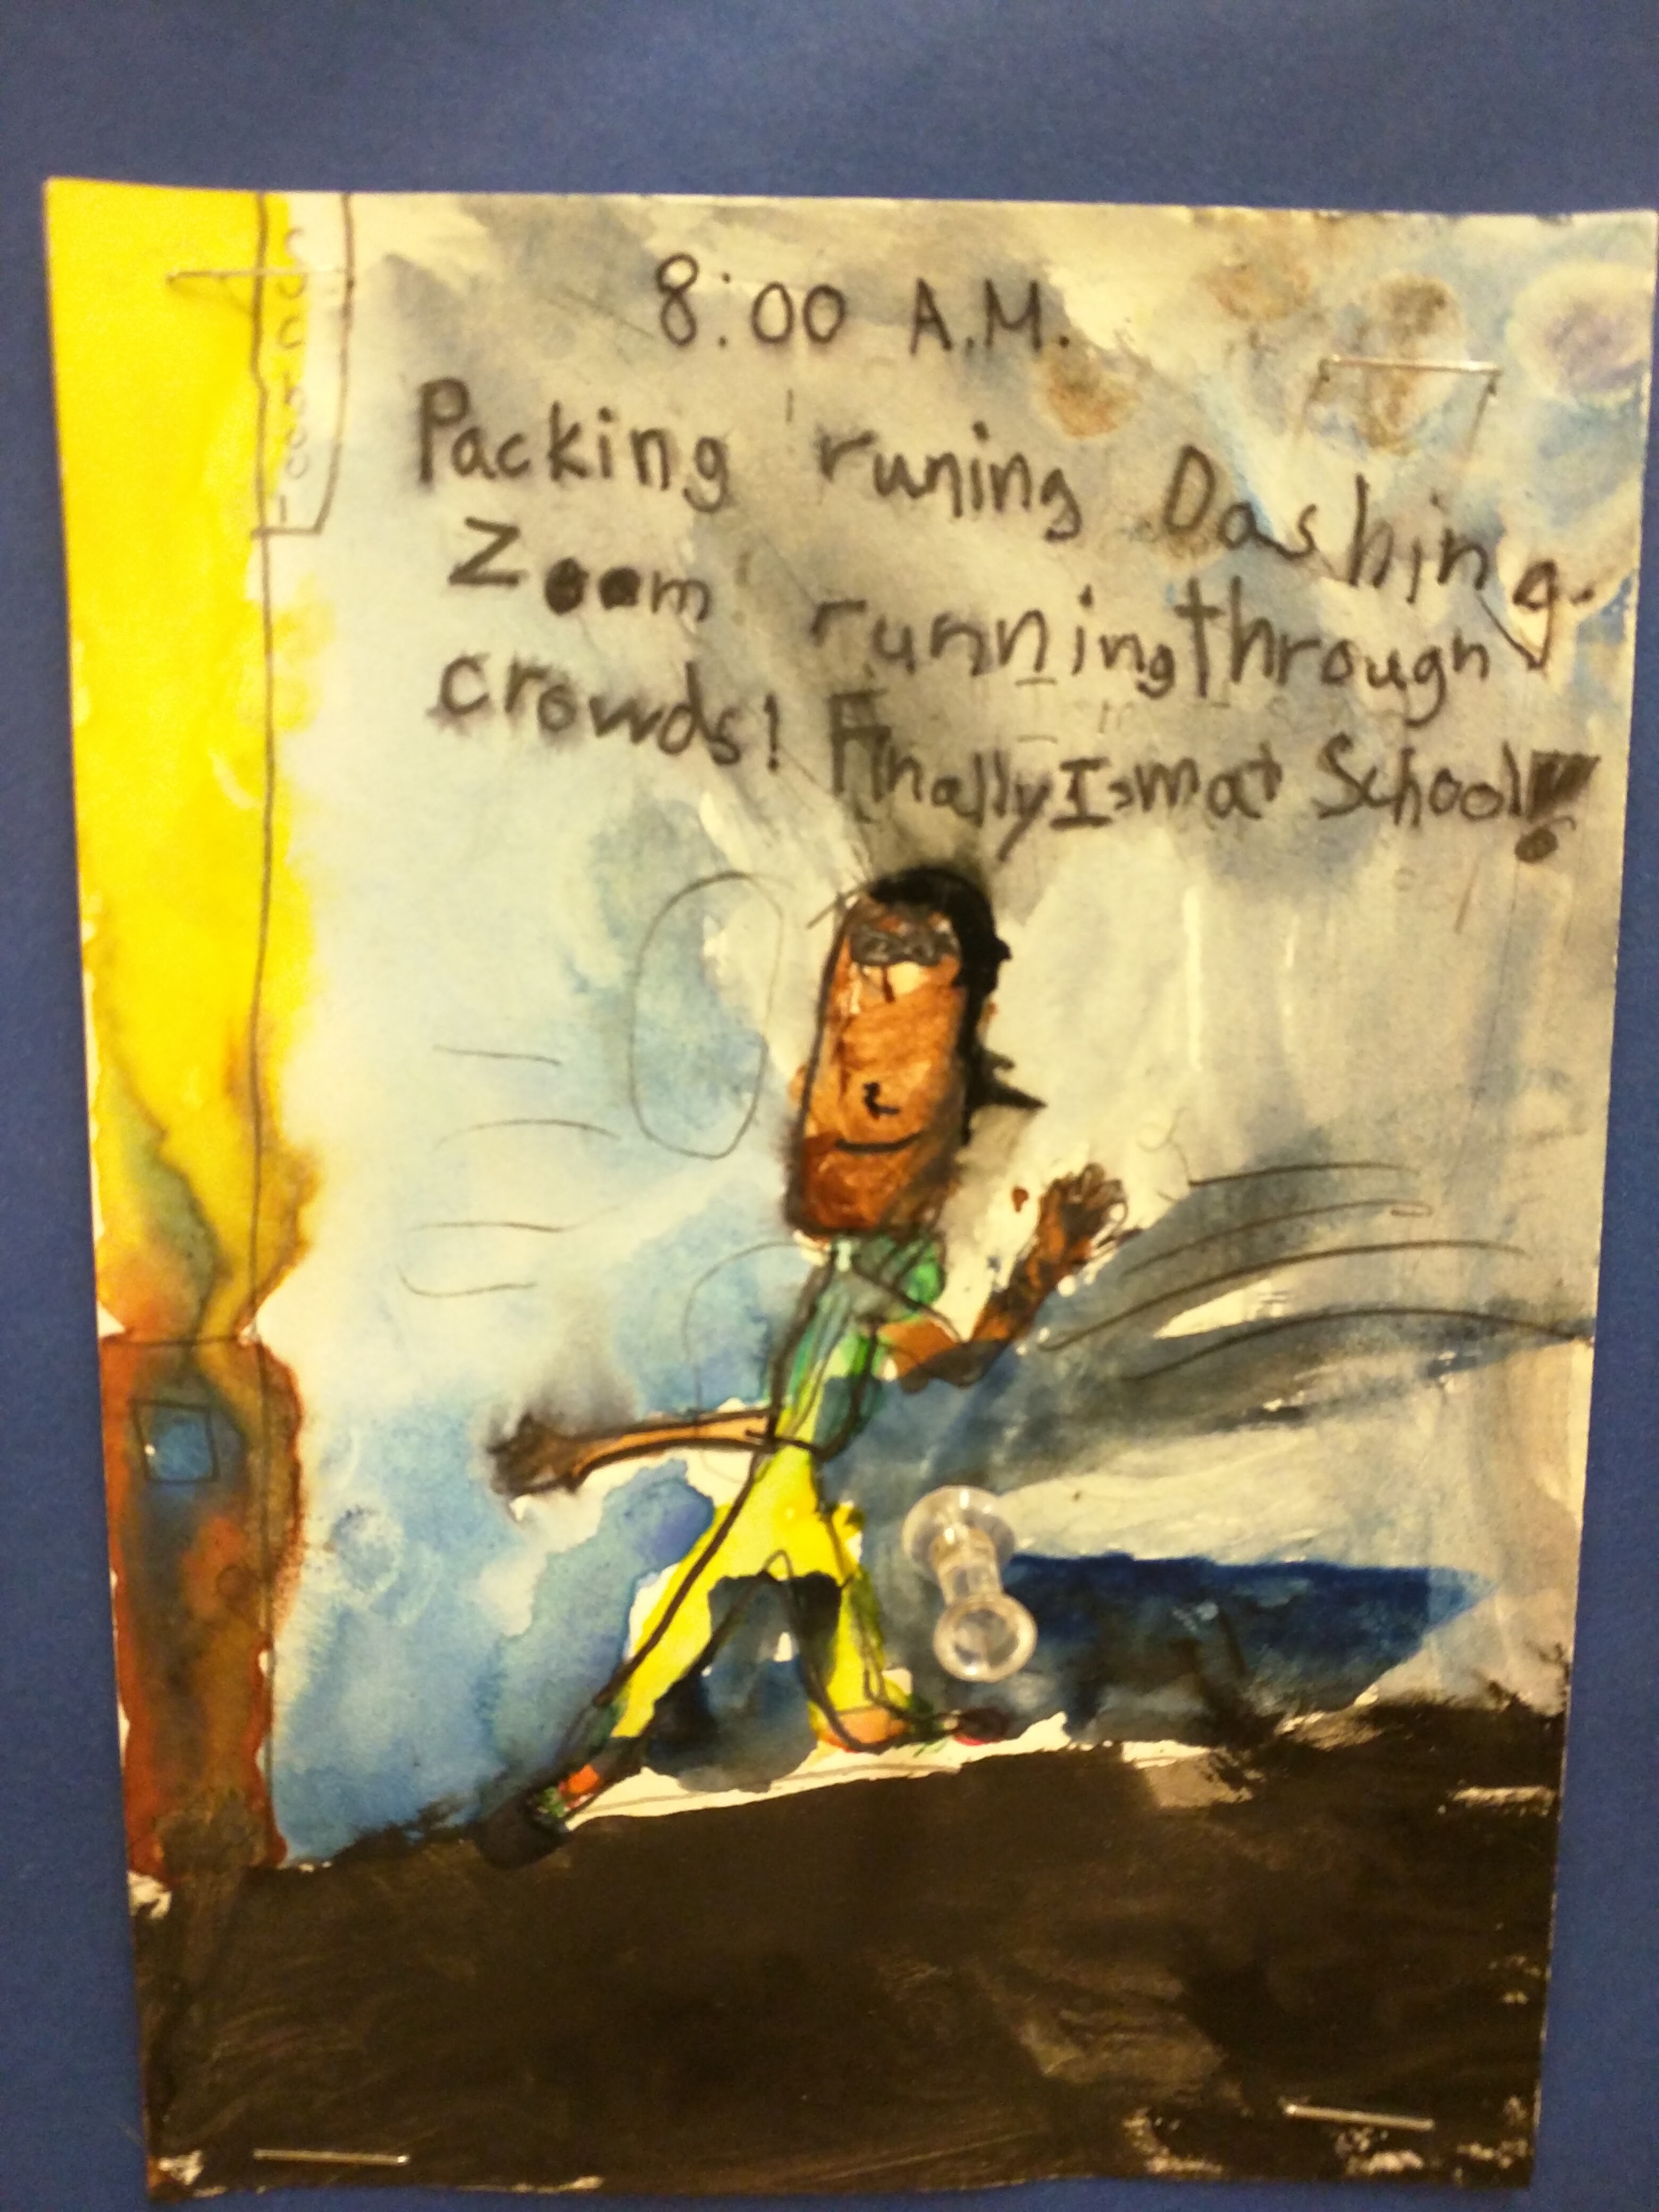 8:00 A.M.
Packing runing Dashing.
Zoom running through
crowds! Finally I'm at School!!!